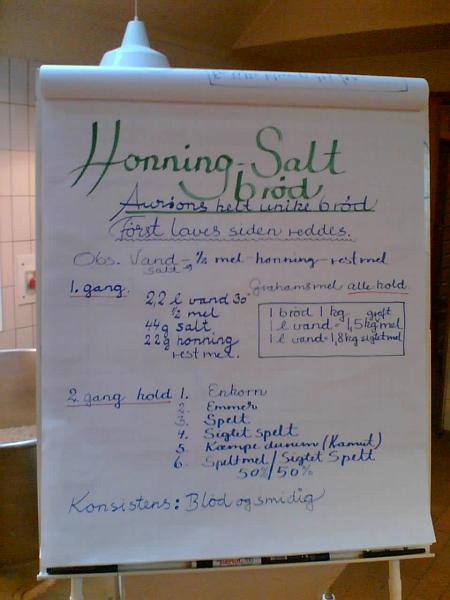 Honning-Salt
brød
Aurions helt unike brød
Först laves siden reddes.
Obs. Vand - ½ mel - honning - restmel
salt
1. gang. Grahamsmel alle hold.
2,2 l vand 30°
½ mel
44g salt.
22g honning
restmel.
1 brød 1 kg. groft
1 l vand = 1,5kg mel
1 l vand = 1,8kg sigtet mel
2. gang hold 1. Enkorn
2. Emmer
3. Spelt
4. Sigtet spelt
5. Kæmpe durum (Kamut)
6. Speltmel / Sigtet Spelt
50% / 50%
Konsistens: Blød og smidig